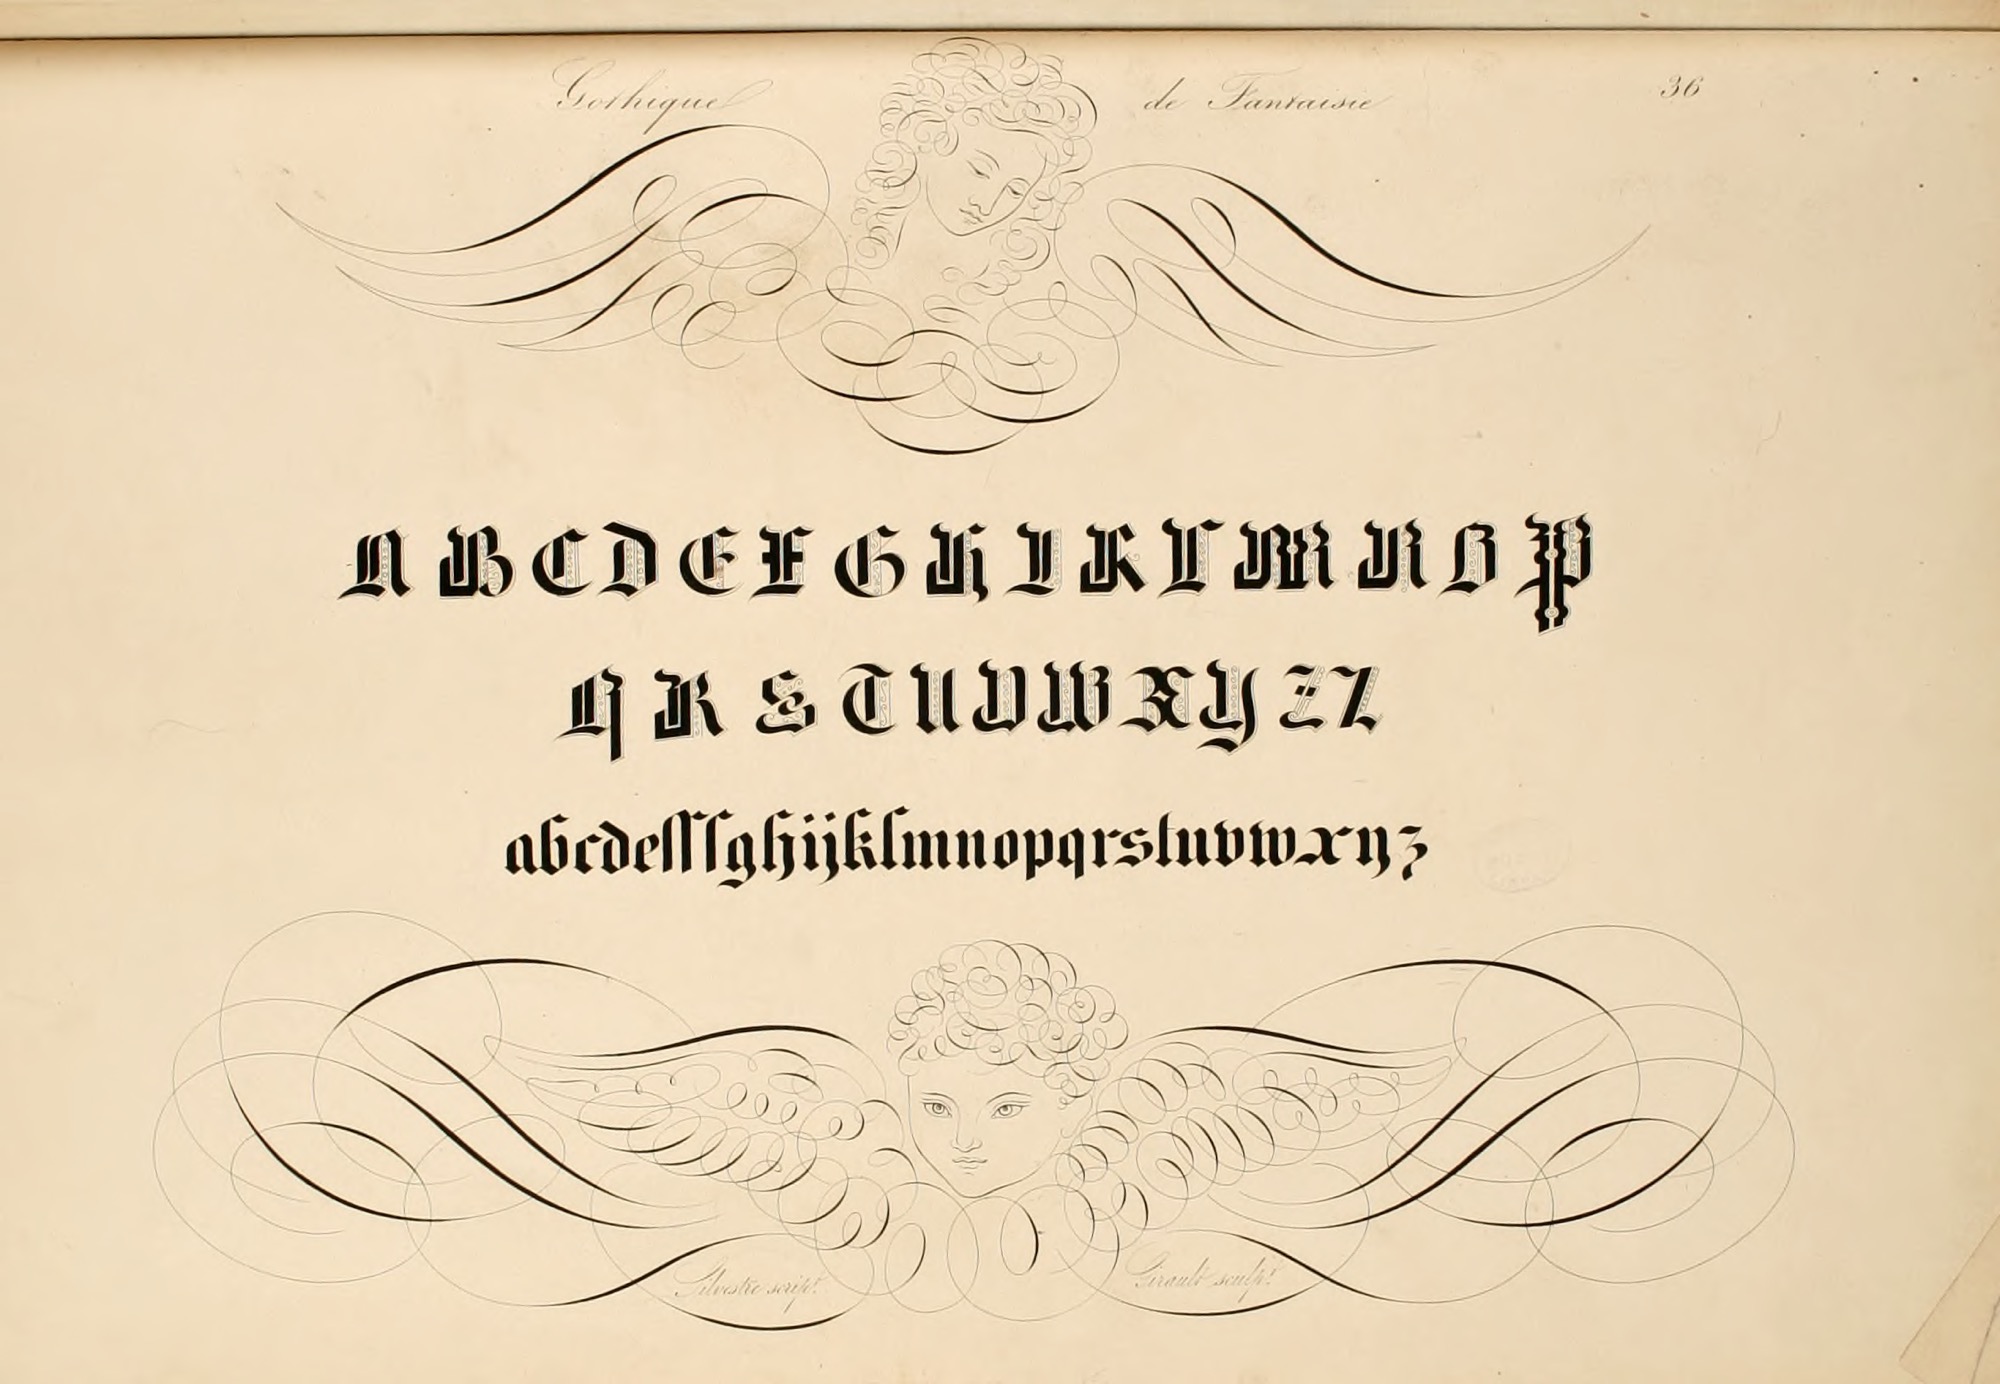 Gothique de Fantaisie 36
A B C D E F G H I K L M N O P
Q R S T U V W X Y Z Z
abcdefffghijklmnopqrstuvwxyz
Silvestre script. Girault sculpt.